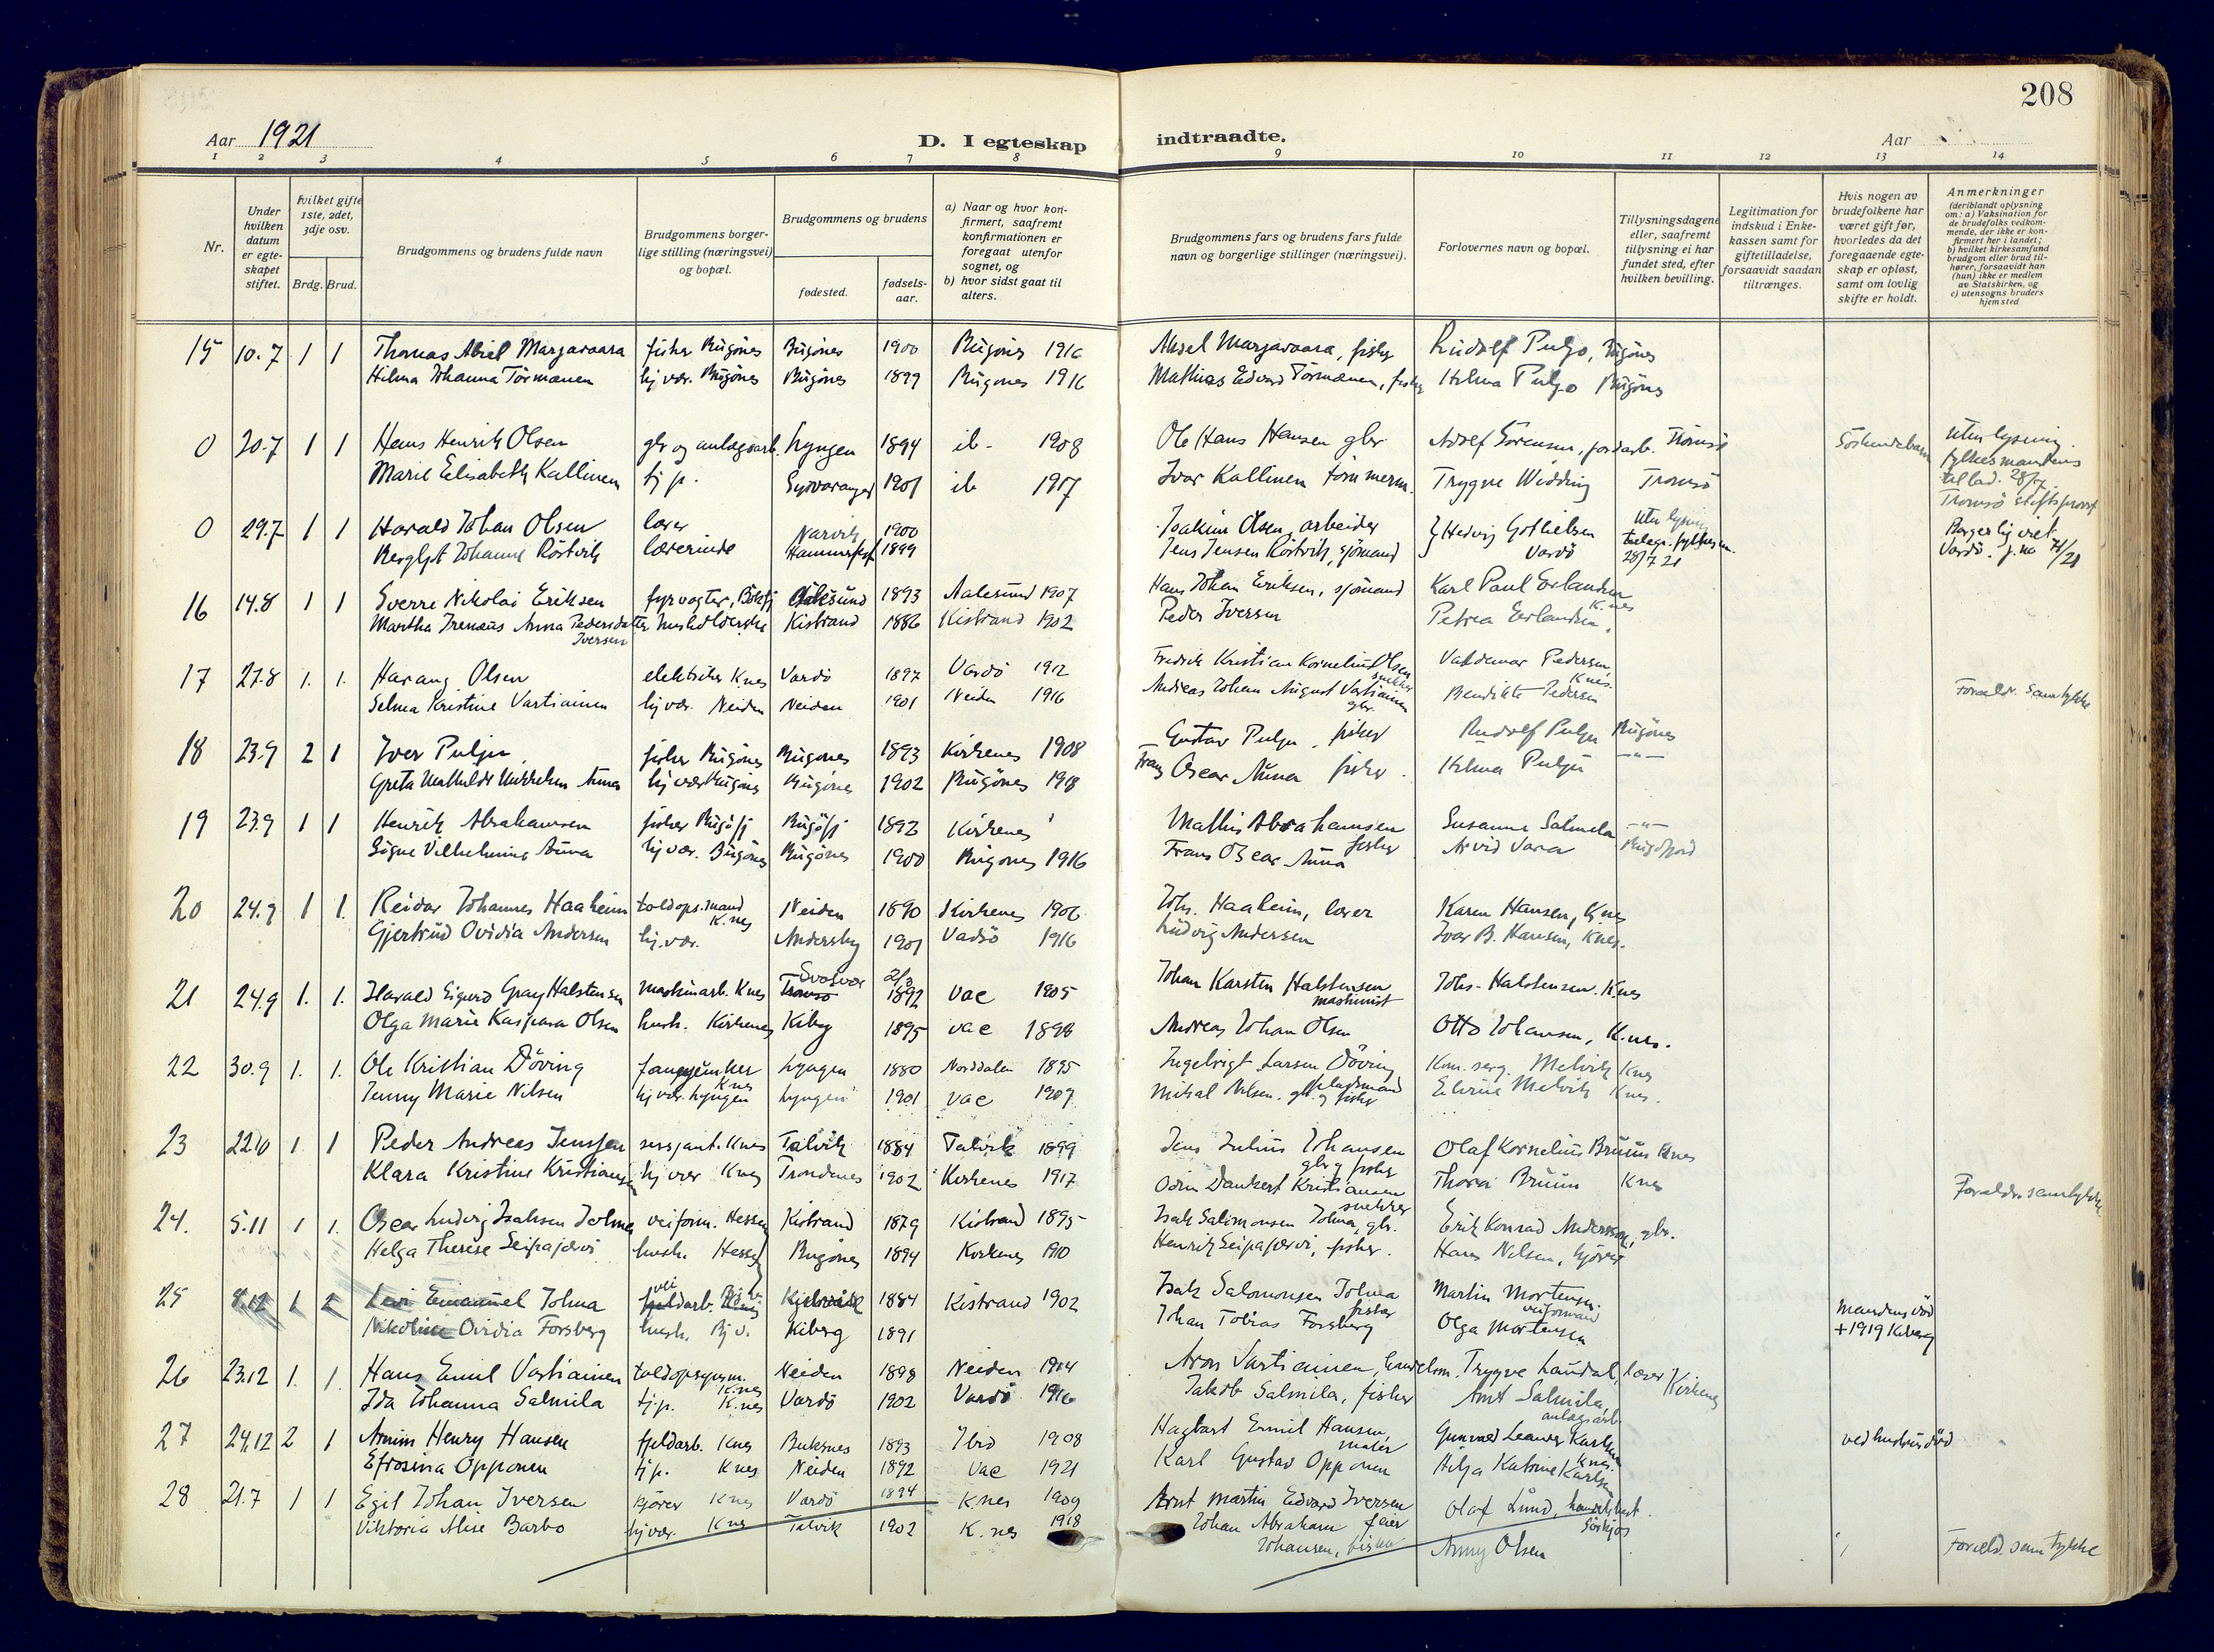 208
Aar 1921
D. I egteskap indtraadte.
Aar
1 2 3 4 5 6 7 8 9 10 11 12 13 14
Nr.
Under hvilken datum er egteskapet stiftet.
hvilket gifte 1ste, 2det, 3dje osv.
Brdg. Brud.
Brudgommens og brudens fulde navn
Brudgommens borgerlige stilling (næringsvei) og bopæl.
Brudgommens og brudens
fødested.
fødselsaar.
a) Naar og hvor konfirmert, saafremt konfirmationen er foregaat utenfor sognet, og
b) hvor sidst gaat til alters.
Brudgommens fars og brudens fars fulde navn og borgerlige stillinger (næringsvei).
Forlovernes navn og bopæl.
Tillysningsdagene eller, saafremt tillysning ei har fundet sted, efter hvilken bevilling.
Legitimation for indskud i Enkekassen samt for giftetilladelse, forsaavidt saadan tiltrænges.
Hvis nogen av brudefolkene har været gift før, hvorledes da det foregaaende egteskap er opløst, samt om lovlig skifte er holdt.
Anmerkninger (deriblandt oplysning om: a) Vaksination for de brudefolks vedkommende, der ikke er konfirmert her i landet; b) hvilket kirkesamfund brudgom eller brud tilhører, forsaavidt han (hun) ikke er medlem av Statskirken, og c) utensogns bruders hjemsted
15 10.7 1 1 Thomas Abiel Marjavaara fisker Bugönes Bugönes 1900 Bugönes 1916 Aksel Marjavaara, fisker Rudolf Puljo, Bugönes
Hilma Johanna Törmænen hj. vær. Bugönes Bugönes 1899 Bugönes 1916 Mathias Edvard Törmænen, fisker Hilma Puljo Bugönes
0 20.7 1 1 Hans Henrik Olsen gbr og anlægsarb. Lyngen 1894 ib - 1908 Ole Hans Hansen gbr. Adolf Sörensen, jordarb. Tromsö Söskendebarn Uten lysning. fylkesmandens tillad. 28/7. Tromsö stiftsprovst
Marie Elisabeth Kallinen tj. p. Sydvaranger 1901 ib 1917 Ivar Kallinen tömmerm. Trygve Widding Tromsö
0 29.7 1 1 Harald Johan Olsen lærer Narvik 1900 Joakim Olsen, arbeider } Hedvig Gotliebsen Vardö Uten lysning 28/7 21 Borgerlig viet. Vardö. j. no 71/21
Bergljot Johanne Röstvik lærerinde Hammerfest 1899 Jens Jensen Röstvik, sjömand
16 14.8 1 1 Sverre Nikolai Eriksen fyrvogter, Bökfj Aalesund 1893 Aalesund 1907 Hans Johan Eriksen, sjömand Karl Paul Erlandsen K.nes
Martha Irenæus Anna Pedersdatter Iversen husholderske Kistrand 1886 Kistrand 1902 Peder Iversen Petrea Erlandsen
17 27.8 1. 1. Harang Olsen elektriker K.nes Vardö 1897 Vardö 1912 Fredrik Kristian Kornelius Olsen snekker Valdemar Pedersen K.nes.
Selma Kristine Vartiainen hj vær. Neiden Neiden 1901 Neiden 1916 Andreas Johan August Vartiainen gbr. Bendikte Pedersen Foræld. samtykke
18 23.9 2 1 Iver Pulju fisker Bugönes Bugönes 1893 Kirkenes 1908 Gustav Pulju, fisker Rudolf Pulju Bugönes
Greta Mathilde Aüna hj vær Bugönes Bugönes 1902 Bugönes 1918 Frans Oscar Aüna fisker. Hilma Pulju - " -
19 23.9 1 1 Henrik Abrahamsen fisker Bugöfj Bugöfj 1892 Kirkenes Mathis Abrahamsen fisker Susanne Salmela - " -
Signe Vilhelmine Aüna hj vær. Bugönes Bugönes 1900 Bugönes 1916 Frans Oscar Aüna Arvid Vara Bugöfjord
20 24.9 1 1. Reidar Johannes Haaheim toldops.mand K.nes Neiden 1890 Kirkenes 1906 Johs. Haaheim, lærer Karen Hansen, K.nes
Gjertrud Ovidia Andersen hj. vær. Andersby 1901 Vadsö 1916 Ludvig Andersen Ivar B. Hansen, K.nes.
21 24.9 1. 1. Harald Sigurd Gray Halstensen maskinarb. Knes Svolvær Tromsö 1892 vac 1905 Johan Karsten Halstensen maskinist Johs. Halstensen. K.nes
Olga Marie Kaspara Olsen hush. Kirkenes Kiberg 1895 vac 1898 Andreas Johan Olsen Otto Johansen, K.nes.
22 30.9 1. 1. Ole Kristian Döving Knes Lyngen 1880 Norddalen 1895 Ingebrigt Larsen Döving Kom. serg. Melvik Knes
Jenny Marie Nilsen hj vær. Lyngen Lyngen 1901 vac 1907 Mikal Nilsen. gbr. og fisker Melvik Knes.
23 22.10 1. 1 Peder Andreas Jenssen sersjant. Knes Talvik 1884 Talvik 1899 Jens Julius Johansen gbr og fisker Olaf Kornelius Bruun Knes
Klara Kristine Kristiansen hj vær Knes Trondenes 1902 Kirkenes 1917 Odin Dankert Kristiansen snekker Thora Bruun Knes Forældr. samtykke
24. 5.11 1 1. Oscar Ludvig Isaksen Tolma veiform. Hesseng Kistrand 1879 Kistrand 1895 Isak Salomonsen Tolma, gbr. Erik Konrad Andersson, gbr.
Helga Therese Seipajærvi hush. Hesseng Bugönes 1894 Kirkenes 1910 Henrik Seipajærvi, fisker. Hans Nilsen, kjörer
25 8.12 1 2 Levi Emanuel Tolma veiarb. Kistrand 1884 Kistrand 1902 Isak Salomonsen Tolma fisker Martin Mortensen. veiformand Mandens död + 1919 Kiberg
Nikoline Ovidia Forsberg hush. Bj.v. Kiberg 1891 Johan Tobias Forsberg Olga Mortensen
26 23.12 1. 1. Hans Emil Vartiainen toldopsynsm. K.nes Neiden 1898 Neiden 1914 Aron Vartiainen, handelsm. Trygve Laudal, lærer Kirkenes
Ida Johanna Salmila tj. p. K.nes Vardö 1902 Vardö 1916 Jakob Salmila, fisker Arnt Salmila, anlægsarb
27 24.12 2 1 Armin Henry Hansen fjeldarb. Knes Buksnes 1893 Ibid 1908 Hagbart Emil Hansen, maler Gunvald Leander Karlsen Knes. ved hustrus död
Efrosina Opponen tj p. Knes Neiden 1892 vac 1921 Karl Gustav Opponen Hilja Katrine Karlsen
28 21.7 1 1 Egil Johan Iversen kjörer Knes Vardö 1894 K.nes 1909 Arnt Martin Edvard Iversen feier Olaf Lund, handelsbest. Sörkjos
Viktoria Alise Barbo hj vær. Knes Talvik 1902 K.nes 1918 Johan Abraham Johansen, fisker Anny Olsen Foræld. samtykke